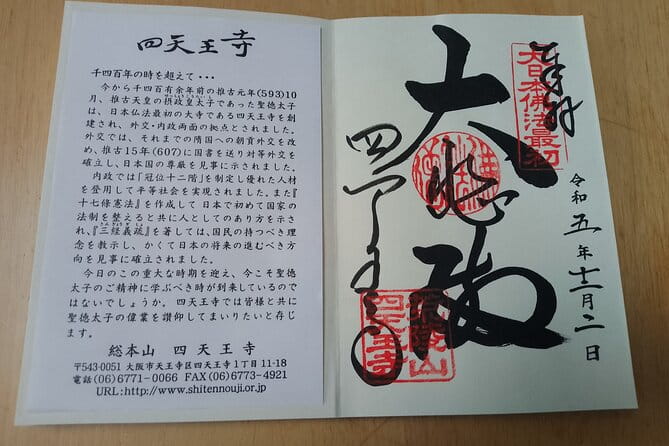 四天王寺
千四百年の時を超えて・・・
今から千四百有余年前の推古元年(593)10
月、推古天皇の摂政皇太子であった聖徳太子
は、日本仏法最初の大寺である四天王寺を創
建され、外交・内政両面の拠点とされました。
外交では、それまでの隋国への朝貢外交を改
め、推古15年(607)に国書を送り対等外交を
確立し、日本国の尊厳を見事に示されました。
内政では「冠位十二階」を制定し優れた人材
を登用して平等社会を実現されました。また『
十七條憲法』を作成して日本で初めて国家の
法制を整えると共に人としてのあり方を示さ
れ、『三経義疏』を著しては、国民の持つべき理
念を教示し、かくて日本の将来の進むべき方
向を見事に確立されました。
今日のこの重大な時期を迎え、今こそ聖徳
太子のご精神に学ぶべき時が到来しているので
はないでしょうか。四天王寺では皆様と共に
聖徳太子の偉業を讃仰してまいりたいと存じ
ます。
総本山 四天王寺
〒543-0051 大阪市天王寺区四天王寺1丁目11-18
電話(06)6771-0066 FAX(06)6773-4921
URL:http://www.shitennouji.or.jp
奉拝
大日本佛法最初
令和五年十二月二日
大悲殿
四天王寺
荒陵山
四天王寺